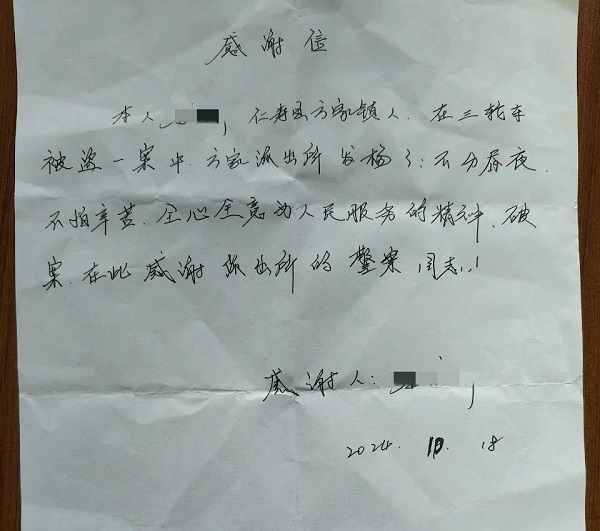 感谢信
本人 , 仁寿县方家镇人. 在三轮车
被盗一案中. 方家派出所发扬了: 不分昼夜.
不怕辛苦. 全心全意为人民服务的精神. 破
案. 在此感谢派出所的警案同志..!
感谢人:
2024. 10. 18